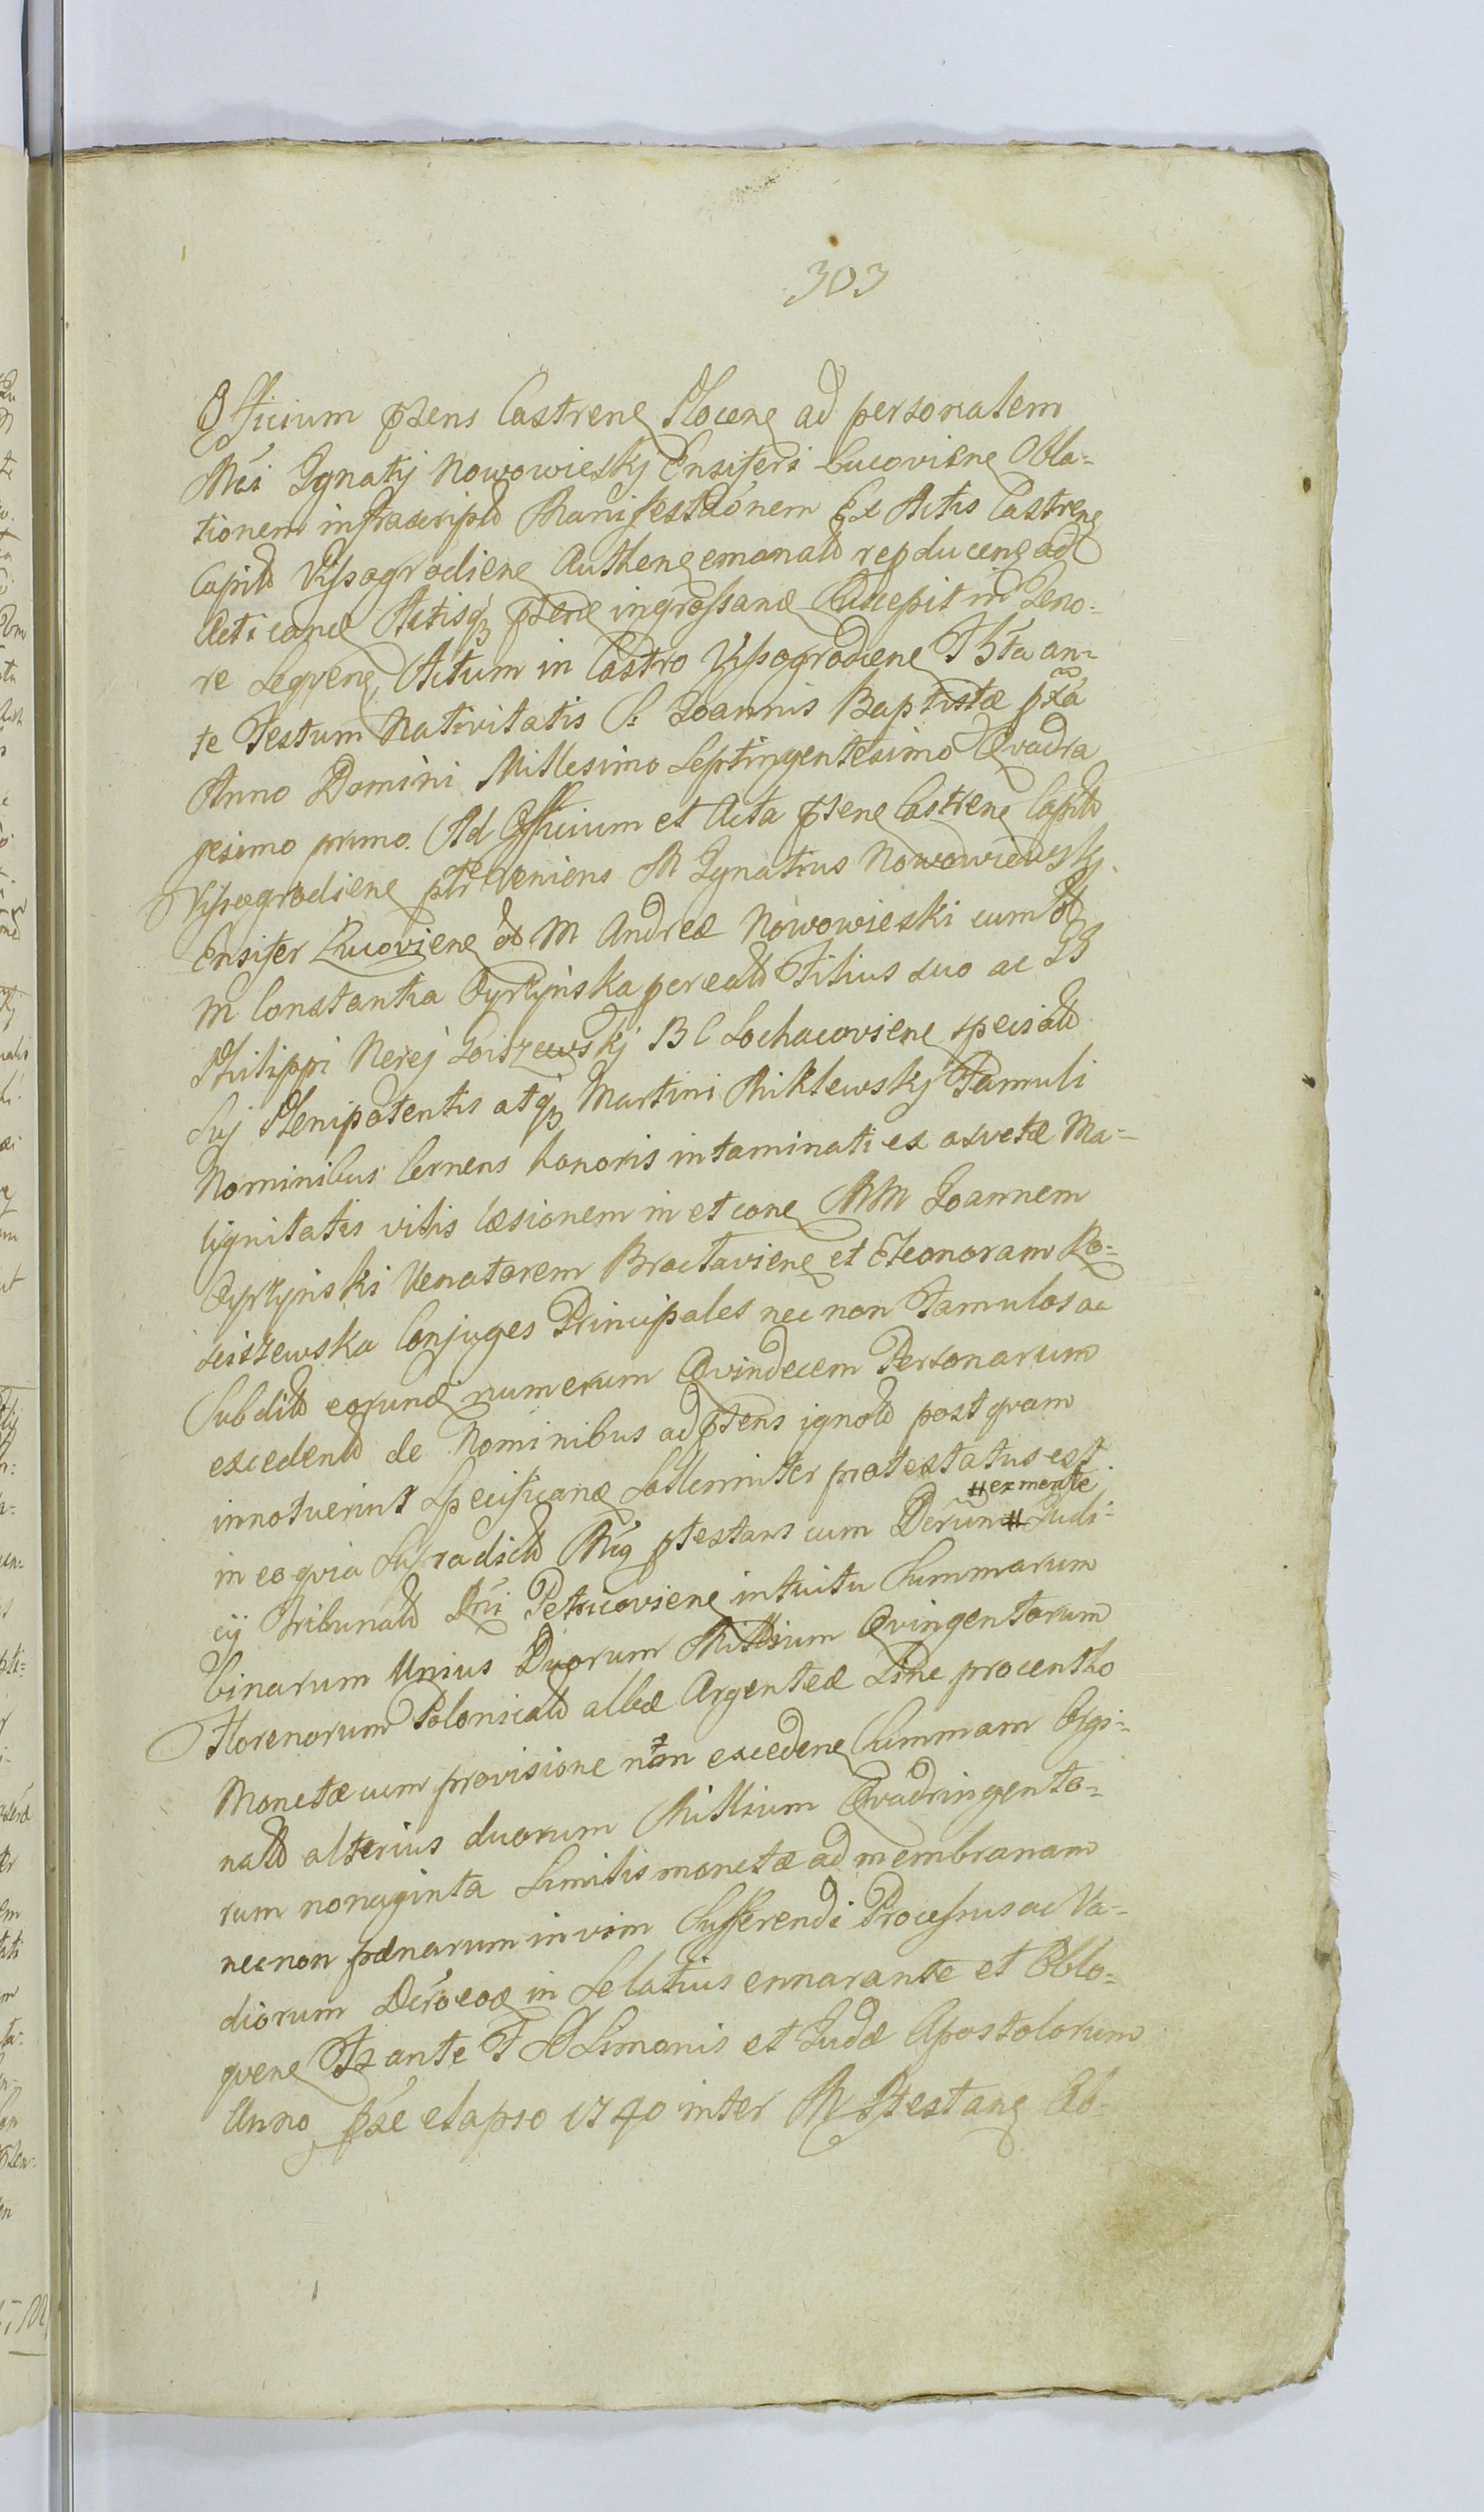 303
Officium pñens Castren̄ Plocen̄ ad personalem
Mći Ignatij Nowowieskj Ensiferi Lucovien̄ Obla-
tionem infrascript Manifestãonem Ex Actis Castren̄
Capit Vissogrodien̄ Authen̄ emanat reproducen̄ ad
Acticand Actisq; pñen̄ ingrossand Suscepit in Teno-
re seqven̄, Actum in Castro Vissogrodien̄ Fta an-
te Festum Nativitatis S. Joannis Baptistæ pxa
Anno Domini Millesimo Septingentesimo Qvadra
gesimo primo. Ad Officium et Acta pñen̄ Castren̄ Capit
Vissogrodien̄ pltr Veniens M Ignatius Nowowiewskj
Ensifer Lucovien̄ M Andreæ Nowowieski cum
M Constantia Cyrzÿnska procreat Filius suo ac GG
Philippi Nerej Goiszewskj B C Sochacovien̄ special
Suj Plenipotentis atq; Martini Miklewskj Famuli
Nominibus Cernens honoris intaminati ex asvetæ Ma-
lignitatis vitis læsionem in et con̄ MM Joannem
Cyrzynski Venatorem Braclavien̄ et Eleonoram Ro-
sciszewska Conjuges Principales nec non Famulos ac
Subdit eorund numerum Qvindecem Personarum
excedent de Nominibus ad pñens ignot post qvam
innotuerint Specificand Sollenniter protestatus est.
in eo qvia Supradict Mig ptestans cum Dcrum # Judi-
# ex mente
cij Tribunal Rni Petricovien̄ intuitu Summarum
binarum Unius Duorum Millium Qvingentorum
Florenorum Polonical albæ Argenteæ Sine procentho
Monetæ cum provisione non exceden̄ Summam Orgi-
nal alterius duorum Millium Qvadringento-
rum nonaginta Similis monetæ ad membranam
necnon pænarum in vim Sufferendi Processus ac Va-
diorum in Se latius ennarante et Oblo-
qven̄ ante F SS Simonis et Judæ Apostolorum
Anno pxe elapso 1740 inter M Ptestan̄ Ab-